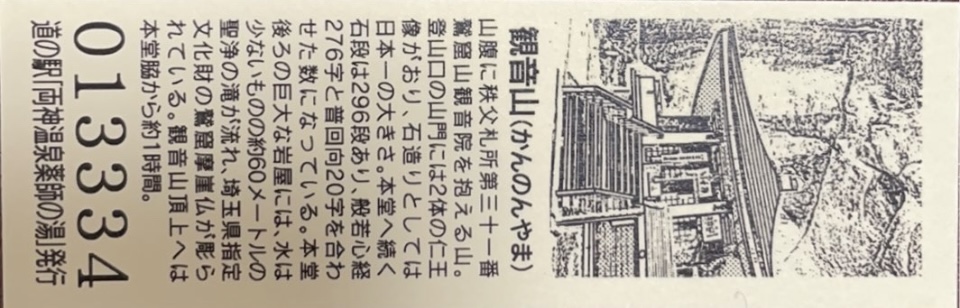 観音山(かんのんやま)
山腹に秩父札所第三十一番
鷲窟山観音院を抱える山。
登山口の山門には2体の仁王
像がおり、石造りとしては
日本一の大きさ。本堂へ続く
石段は296段あり、般若心経
276字と普回向20字を合わ
せた数になっている。本堂
後ろの巨大な岩屋には、水は
少ないものの約60メートルの
聖浄の滝が流れ、埼玉県指定
文化財の鷲窟磨崖仏が彫ら
れている。観音山頂上へは
本堂脇から約1時間。
013334
道の駅「両神温泉薬師の湯」発行